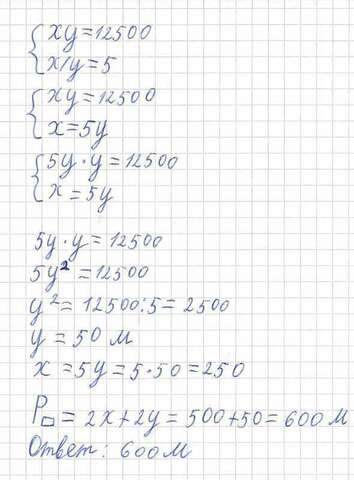 xy=12500
x/y=5
xy=12500
x=5y
5y·y=12500
x=5y
5y·y=12500
5y²=12500
y²=12500:5=2500
y=50 м
x=5y=5·50=250
P□=2x+2y=500+50=600 м
Ответ: 600 м